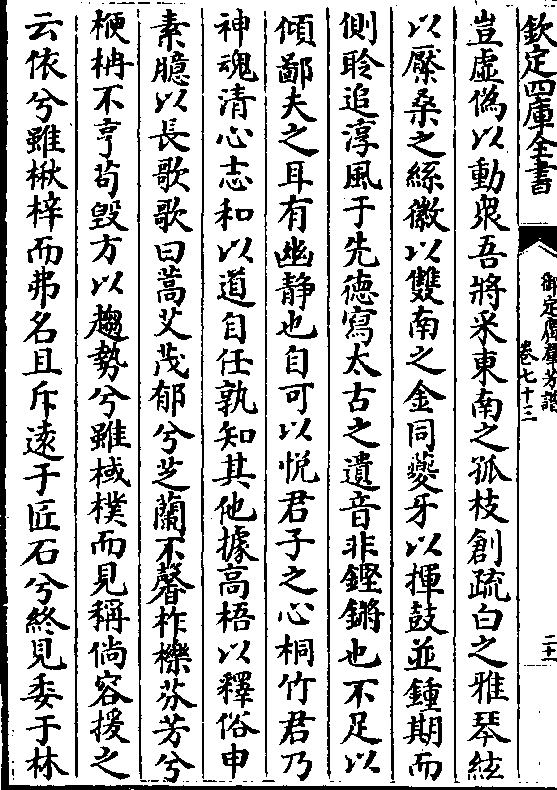 欽定四庫全書
御定廣羣芳譜
卷七十三
二十
豈虛偽以動衆吾將采東南之孤枝創疏白之雅琴絃
以檿桑之絲徽以雙南之金同夔牙以揮鼓並鍾期而
側聆追淳風于先德寫太古之遺音非鏗鏘也不足以
傾鄙夫之耳有幽静也自可以悦君子之心桐竹君乃
神魂清心志和以道自任孰知其他據高梧以釋俗申
素臆以長歌歌曰蒿艾茂郁兮芝蘭不馨柞櫟芬芳兮
楩柟不亨苟毀方以趨勢兮雖棫樸而見稱倘容援之
云依兮雖楸梓而弗名且斥遠于匠石兮終見委于林